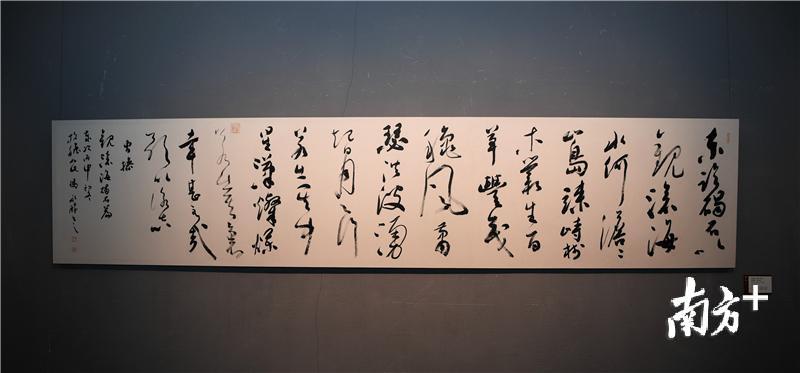 東臨碣石以
觀滄海
水何澹〻
山島竦峙樹
木叢生百
草豐茂
穐風蕭
瑟洪波湧
起日月之行
若出其中
星漢燦爛
若出其裏
幸甚至哉
歌以詠志
曹操
觀滄海碣石篇
南方+